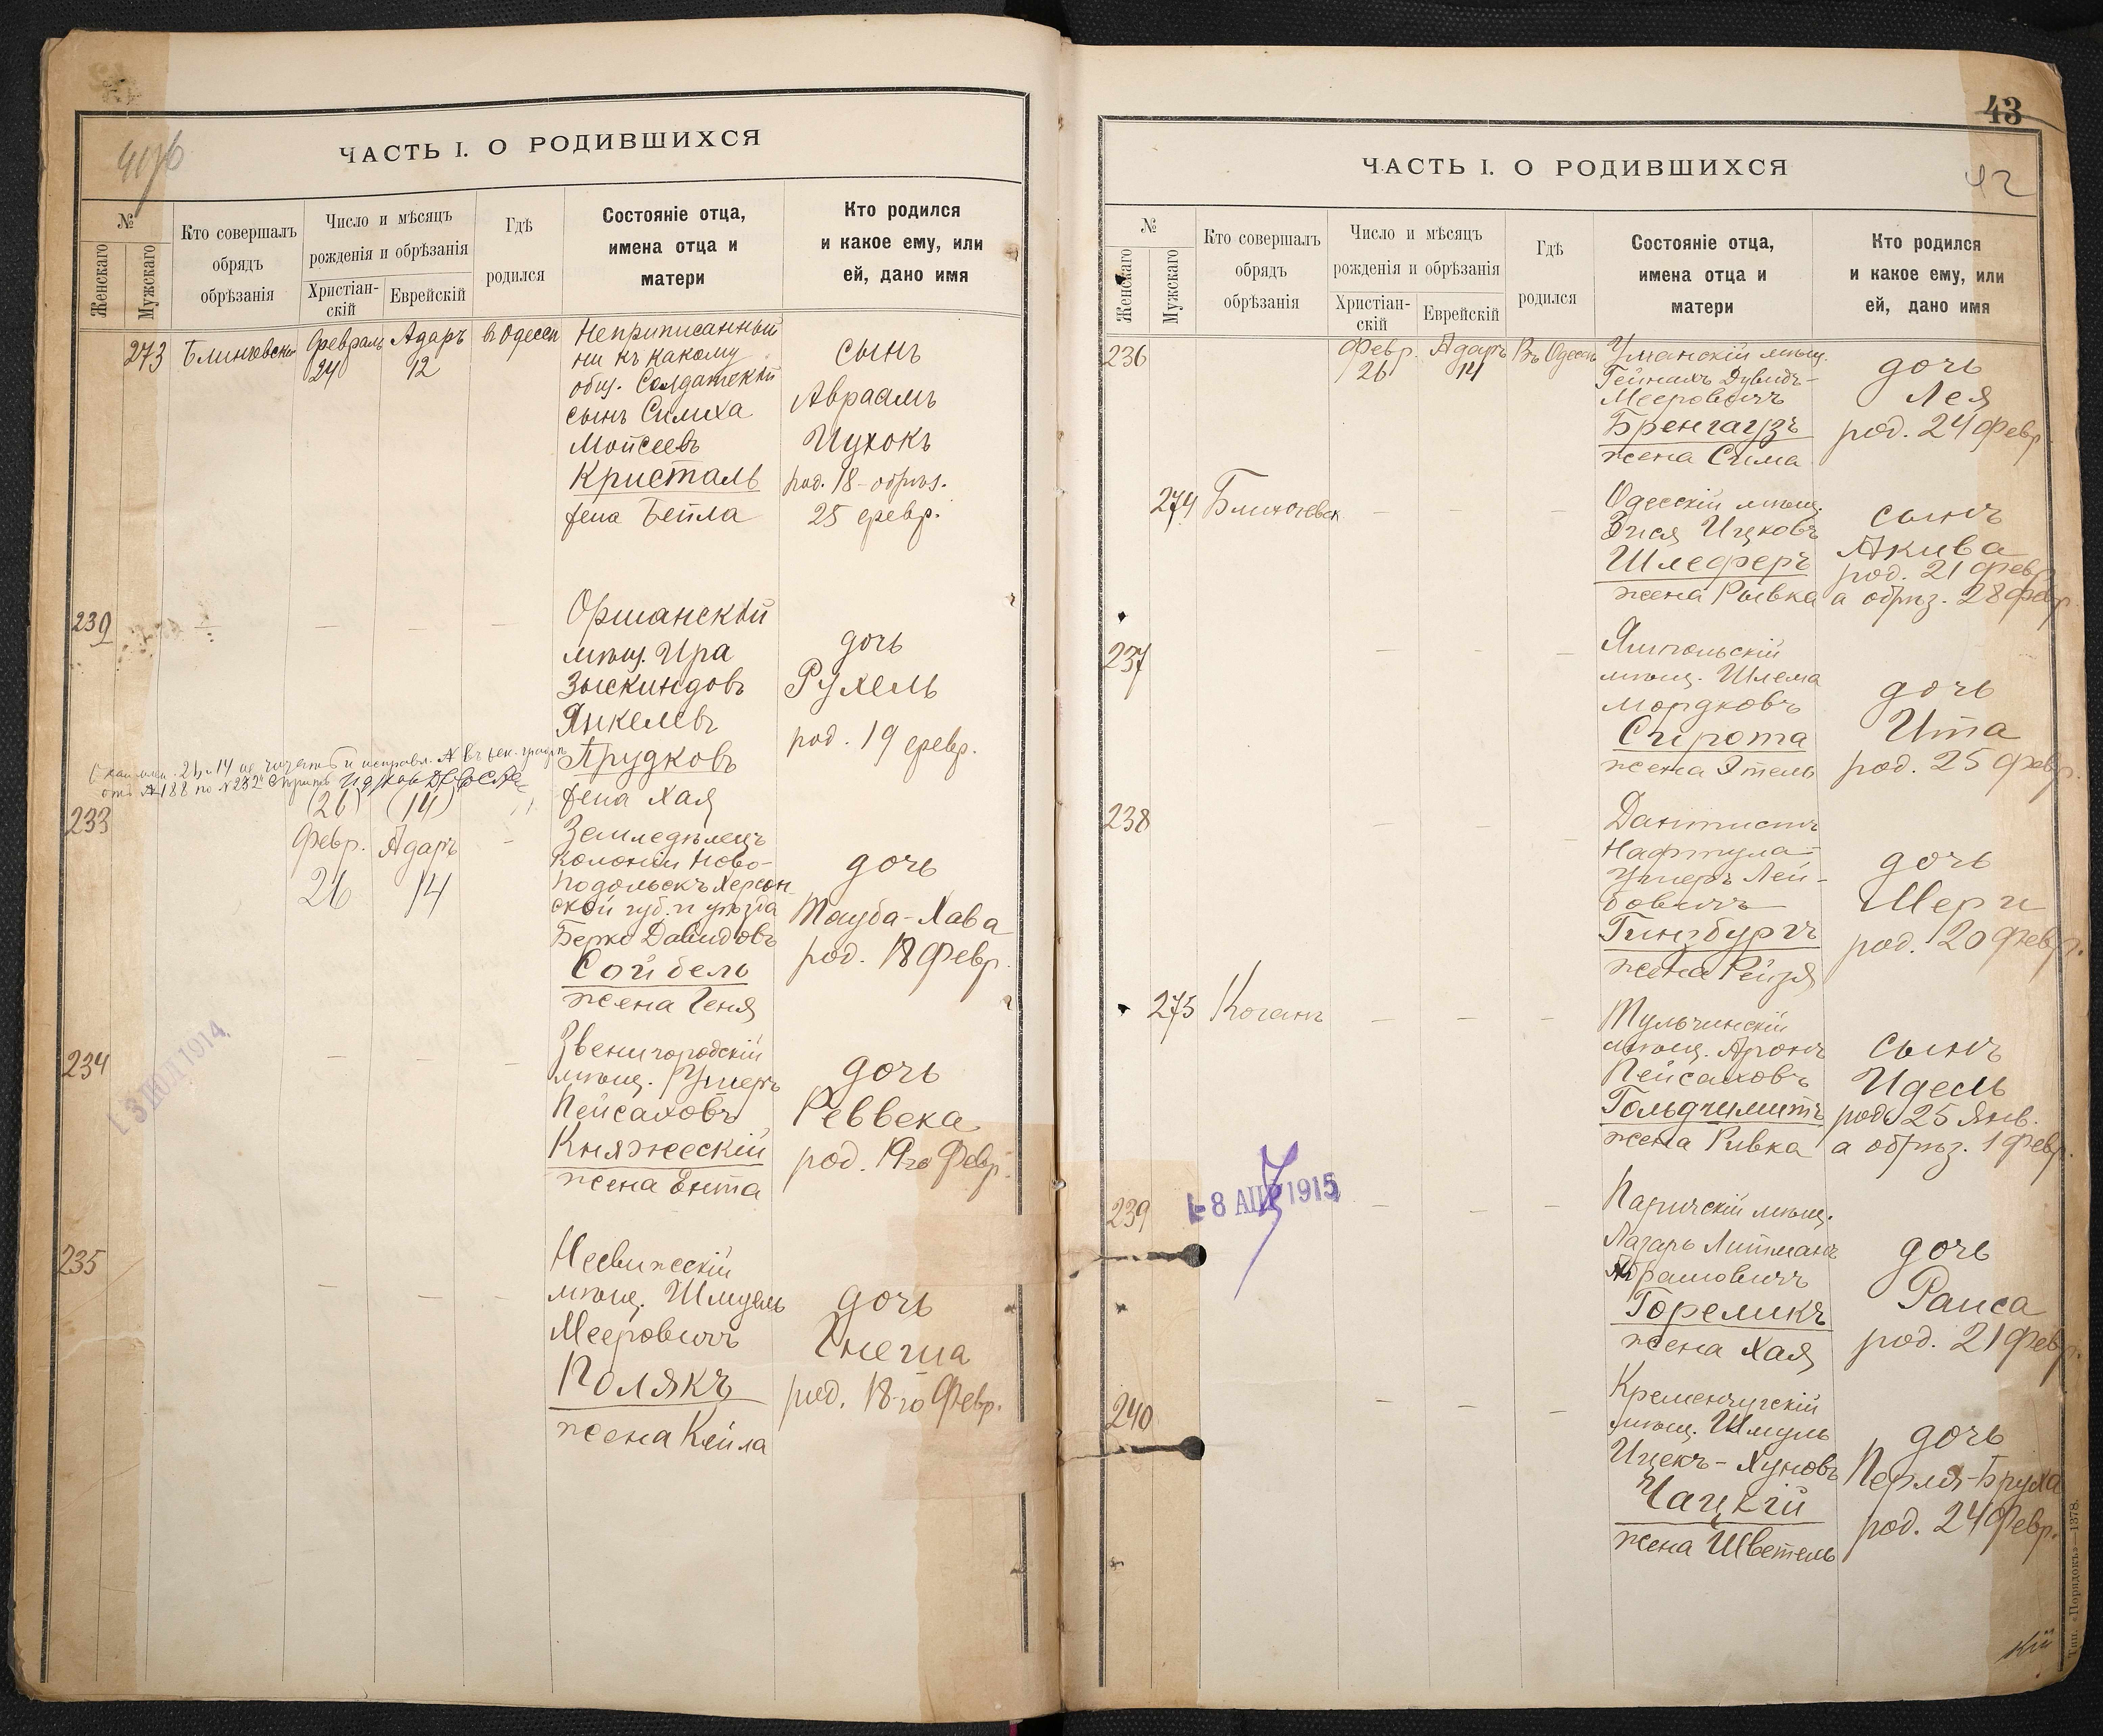 ЧАСТЬ I. О РОДИВШИХСЯ
№
Женскаго
Мужскаго
Кто совершалъ
обрядъ
обрѣзанія
Число и мѣсяцъ
рожденія и обрѣзанія
Христіан-
скій
Еврейскій
Гдѣ
родился
Состояніе отца,
имена отца и
матери
Кто родился
и какое ему, или
ей, дано имя
273
Февраль
24
Адаръ
12
въ Одессѣ
Неприписанный
ни къ какому
общ. Солдатскій
сынъ Симха
Мойсеевъ
Кристаль
жена Бейла
сынъ
Авраамъ
Ицхокъ
род. 18 – обрѣз.
25 февр.
Оршанскій
мѣщ. Ира
Зыскиндовъ
Янкелевъ
Прудковъ
жена Хая
дочь
Рухель
род. 19 февр.
(26)
(14)
233
Февр.
26
Адаръ
14
Земледѣлецъ
колоніи Ново-
подольскъ Херсон
ской губ. и уѣзда
Берко Давидовъ
Сойбель
жена Геня
дочь
Тауба-Хава
род. 18 Февр.
234
Звенигородскій
мѣщ. Ушеръ
Пейсаховъ
Княжескій
жена Ента
дочь
Реввека
род. 19го Февр.
1 3 ІЮЛ 1914
235
Несвижескій
мѣщ. Шмуель
Мееровичъ
Полякъ
жена Кейла
дочь
род. 18-го Февр.
43
42
ЧАСТЬ I. О РОДИВШИХСЯ
№
Женскаго
Мужскаго
Кто совершалъ
обрядъ
обрѣзанія
Число и мѣсяцъ
рожденія и обрѣзанія
Христіан-
скій
Еврейскій
Гдѣ
родился
Состояніе отца,
имена отца и
матери
Кто родился
и какое ему, или
ей, дано имя
236
Февр.
26
Адаръ
14
Въ Одессѣ
Уманскій мѣщ.
Гейнахъ Дувидъ-
Мееровичъ
Бренгаузъ
жена Сима
дочь
Лея
род. 24 Февр.
274
Одесскій мѣщ.
Зися Ицковъ
Шлеферъ
жена Рывка
сынъ
Акива
род. 21 Февр.
а обрѣз. 28 Февр.
237
Ямпольскій
мѣщ. Шлема
Мордковъ
Сирота
жена Этель
дочь
Ита
род. 25 Февр.
238
Дантистъ
Нафтула-
Ушеръ Лей-
бовичъ
Гинзбургъ
жена Рейзя
дочь
Мери
род. 20 Февр.
275
Коганъ
Тульчинскій
мѣщ. Аронъ
Пейсаховъ
Гольдшмитъ
жена Ривка
сынъ
Идель
род. 25 Янв.
а обрѣз. 1 Февр.
239
- 8 АПР 1915
Паричскій мѣщ.
Лазарь Литманъ
Абрамовичъ
Горемикъ
жена Хая
дочь
Раиса
род. 21 Февр.
240
Кременчугскій
мѣщ. Шмуль
Ицекъ-Хуновъ
Чацкій
жена Цветель
дочь
Перля-Бруха
род. 24 Февр.
Тип. «Порядокъ»—1378.